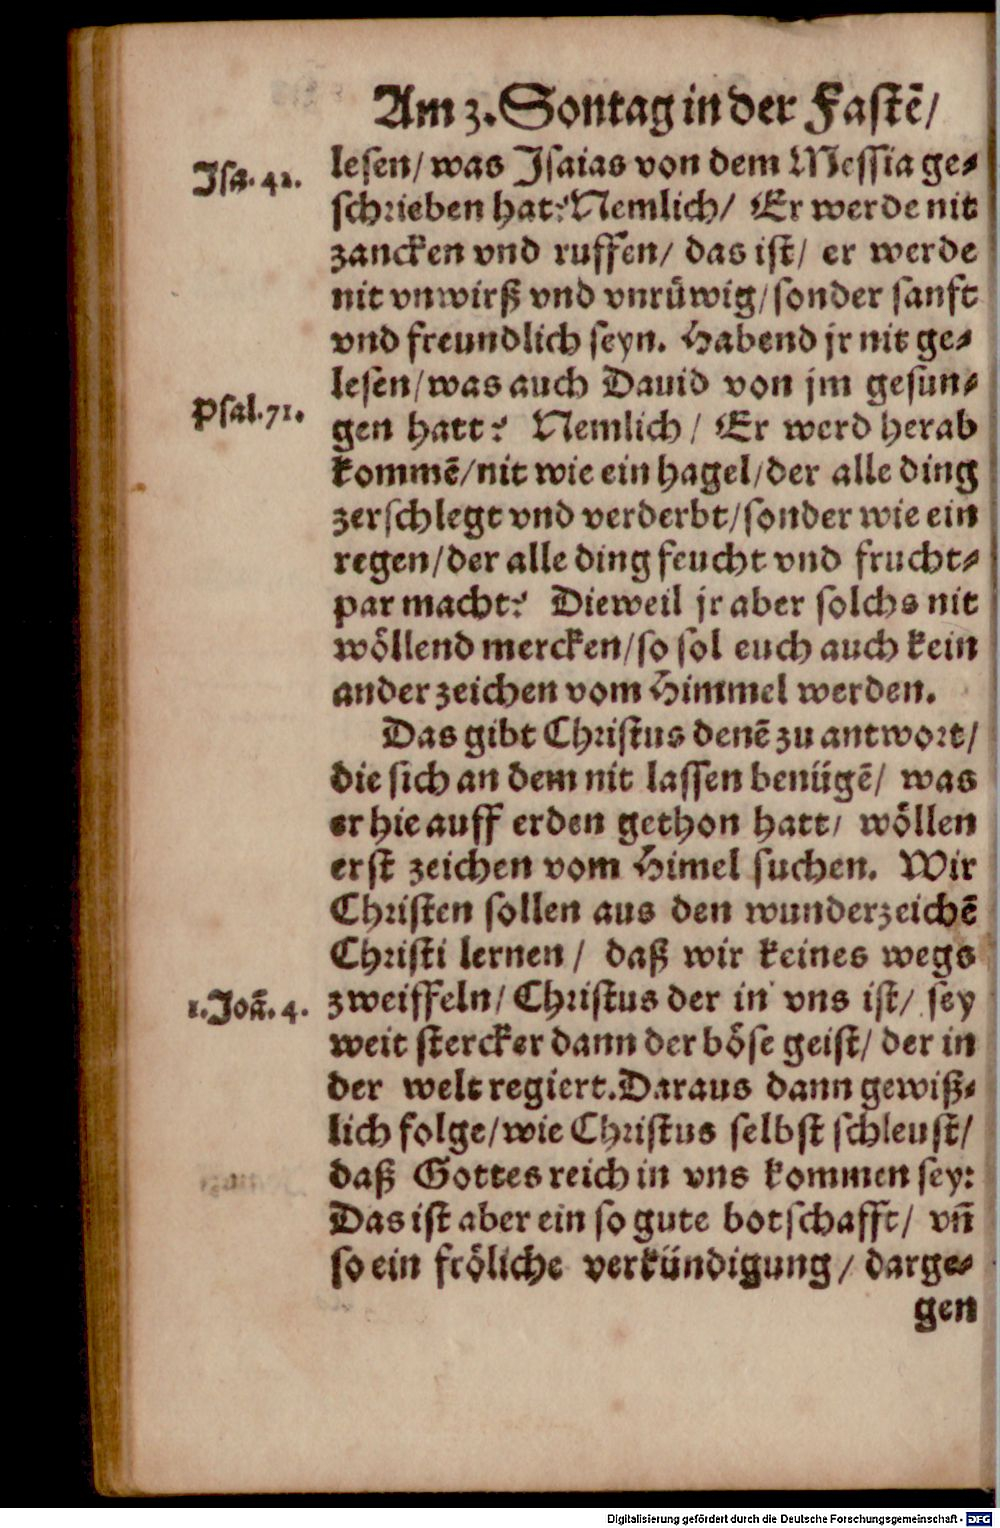 Am 3. Sontag in der Fastẽ/
Isa. 42.
lesen/ was Isaias von dem Messia ge⸗
schrieben hat? Nemlich/ Er werde nit
zancken vnd ruffen/ das ist/ er werde
nit vnwirß vnd vnrüwig/ sonder sanft
vnd freundlich seyn. Habend jr nit ge⸗
lesen/ was auch Dauid von jm gesun⸗
Psal. 71.
gen hatt? Nemlich/ Er werd herab
kommẽ/ nit wie ein hagel/ der alle ding
zerschlegt vnd verderbt/ sonder wie ein
regen/ der alle ding feucht vnd frucht⸗
par macht? Dieweil jr aber solchs nit
wöllend mercken/ so sol euch auch kein
ander zeichen vom Himmel werden.
Das gibt Christus denẽ zu antwort/
die sich an dem nit lassen benügẽ/ was
er hie auff erden gethon hatt/ wöllen
erst zeichen vom Himel suchen. Wir
Christen sollen aus den wunderzeichẽ
Christi lernen/ daß wir keines wegs
1. Joã. 4.
zweiffeln/ Christus der in vns ist/ sey
weit stercker dann der böse geist/ der in
der welt regiert. Daraus dann gewiß⸗
lich folge/ wie Christus selbst schleust/
daß Gottes reich in vns kommen sey:
Das ist aber ein so gute botschafft/ vñ
so ein fröliche verkündigung/ darge⸗
gen
Digitalisierung gefördert durch die Deutsche Forschungsgemeinschaft - DFG